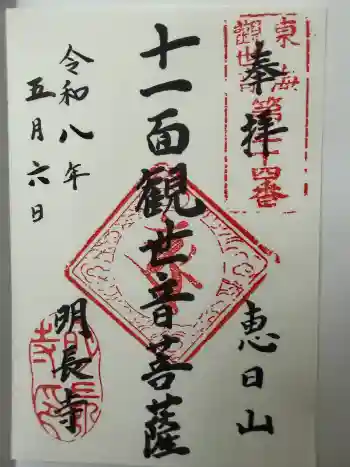 奉拝
東海
觀世音
第二十四番
十一面観世音菩薩
恵日山
明長寺
令和八年
五月六日